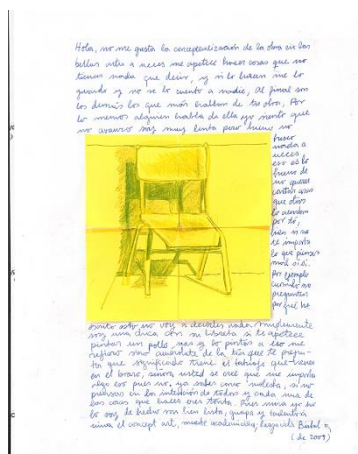 Hola, no me gusta la conceptualización de la obra en las
bellas artes a veces me apetece hacer cosas que no
tienen nada que decir, y si lo hacen me lo
guardo y no se lo cuento a nadie, al final son
los demás los que más hablan de tu obra, Por
lo menos alguien habla de ella yo siento que
no avanzo soy muy lenta pero bueno no
busco
nada a
veces,
eso es lo
bueno de
no querer
contar cosas
que otros
lo
por ti,
bien si no
te importa
lo que piensen
más si sí.
Por ejemplo
cuando me
preguntan
por qué he
escrito esto no voy a decirles nada simplemente
soy una chica con su libreta si te apetece
pintas un pollo, vas y lo pintas a eso me
refiero sino acuérdate de la tía que te pregun-
ta que significado tiene el tatuaje que llevas
en el brazo, señora usted se cree que me importa
algo eso pues no, ya sabes como molesta, si no
piensas en los intereses de todos y cada una de
las cosas que haces eres tonta. Pues mira yo no
lo soy de hecho soy bien lista, guapa y
el concept art, muerte academia,
(de 2009)